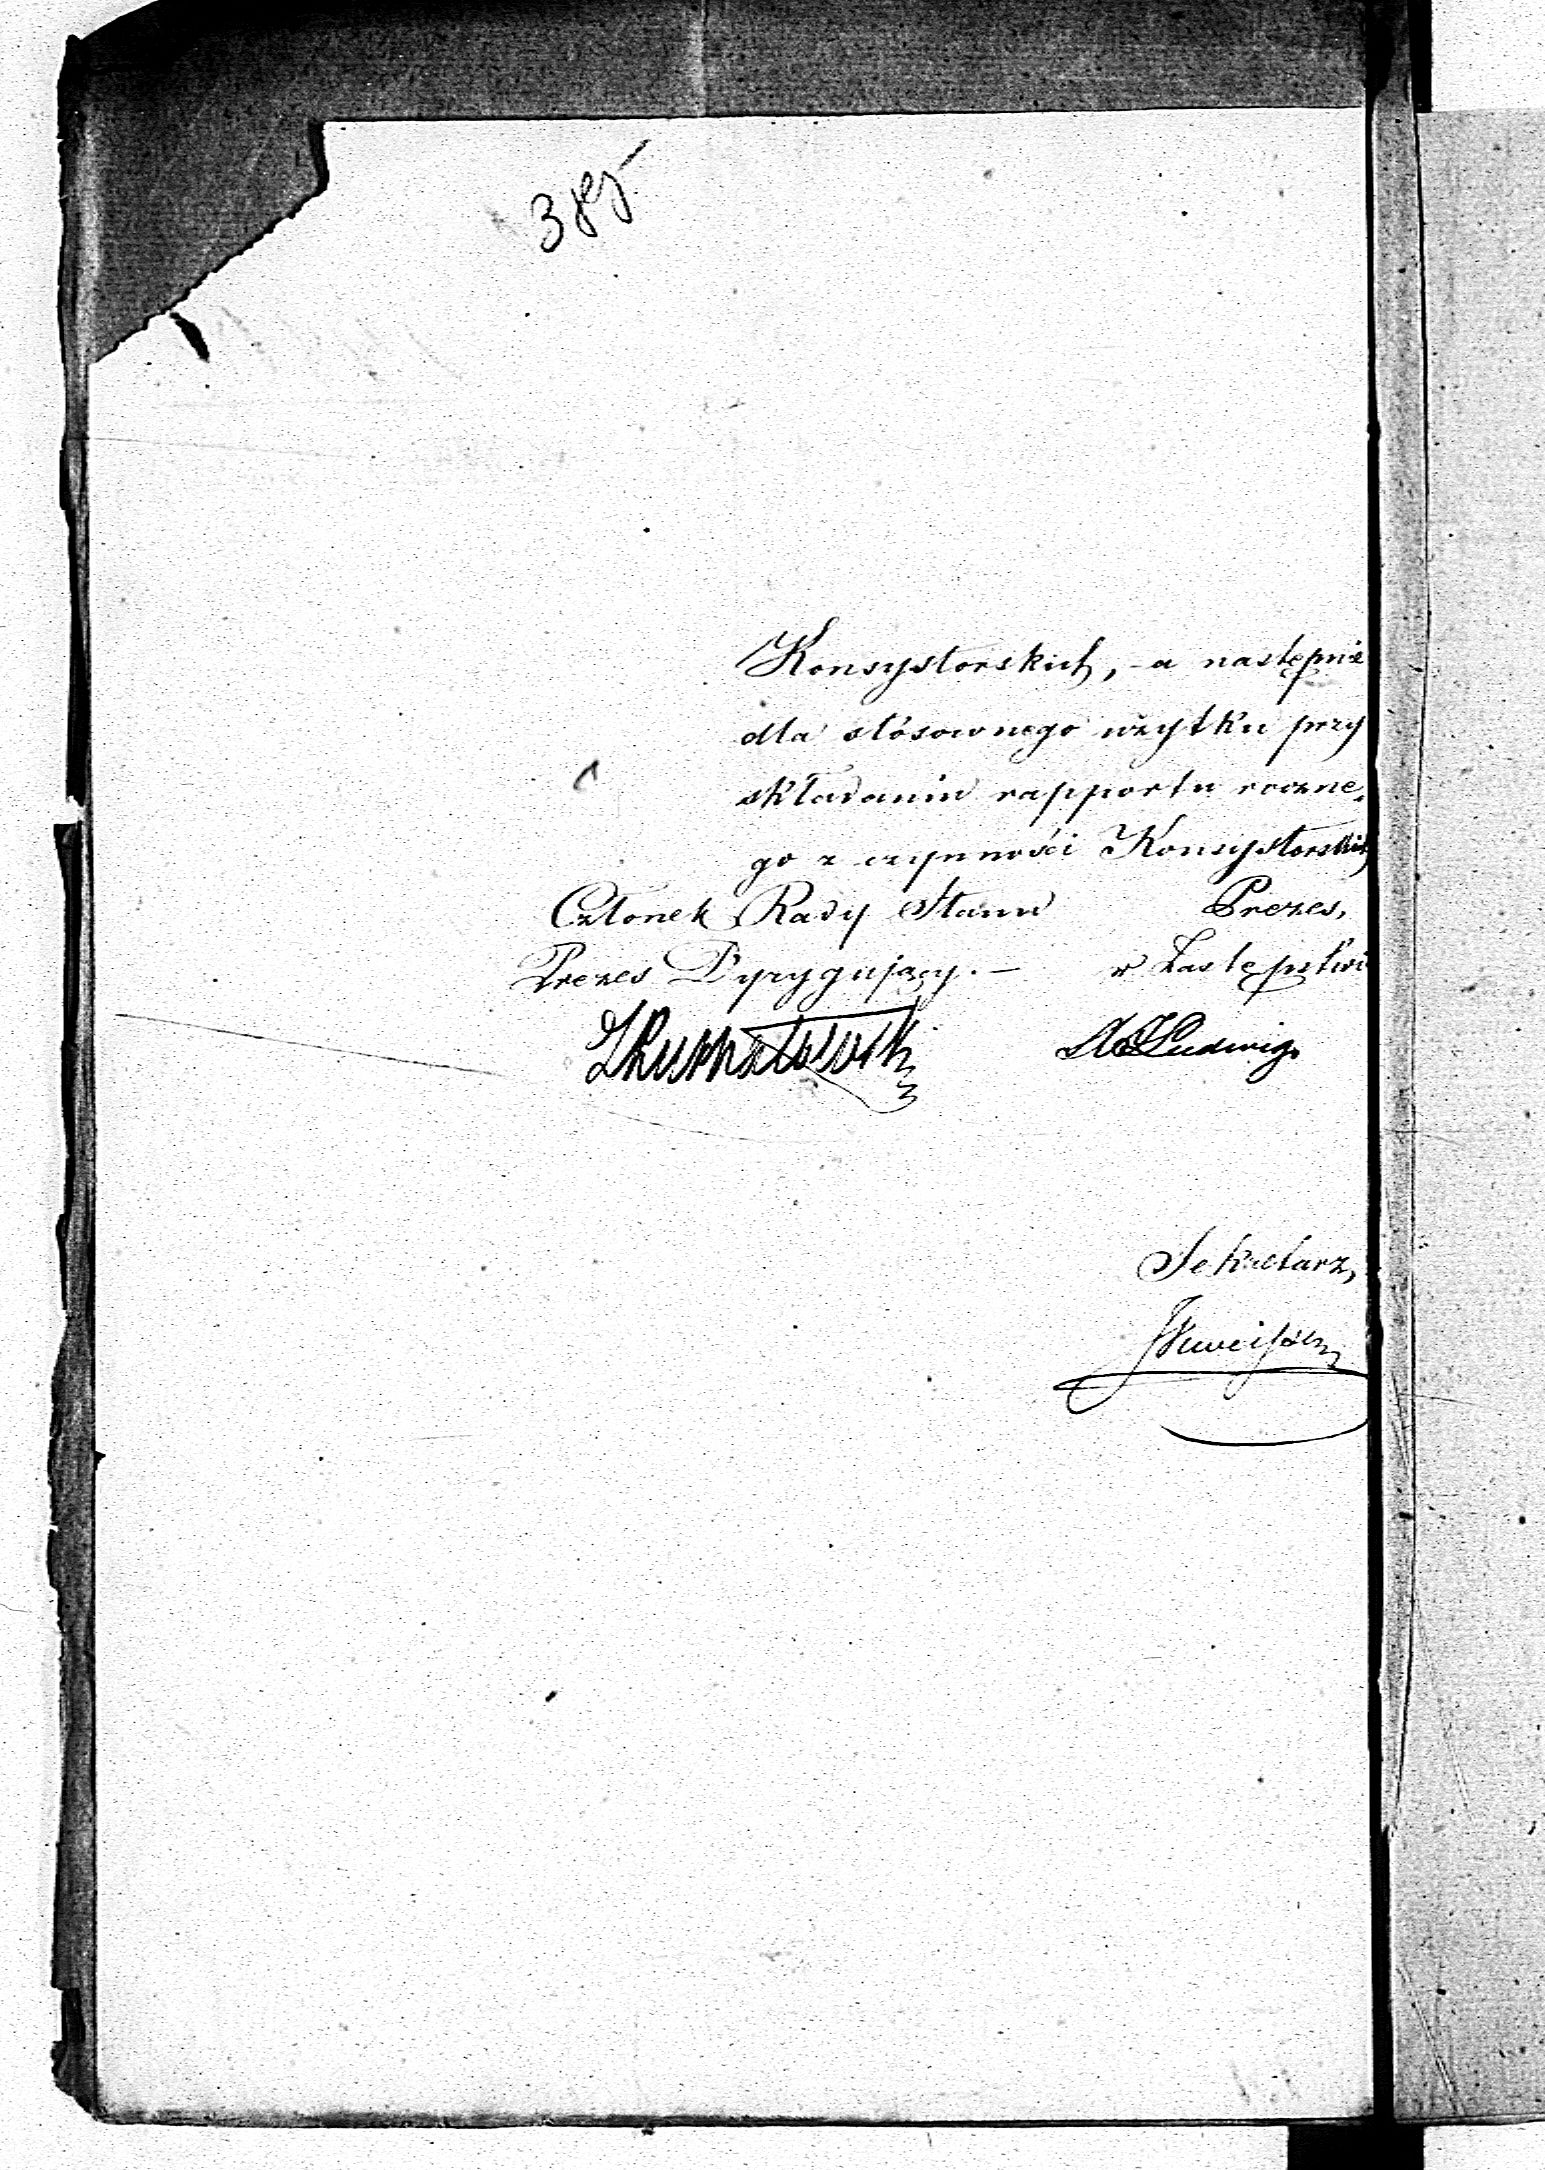 385
Konsystorskich, - a następnie
dla stósownego użytku przy
składaniu rapportu roczne,
go z czynności Konsystorskich
Członek Rady Stanu Prezes,
Prezes Dyrygujący. — w Zastępstwie
Ludwig
Sekretarz,